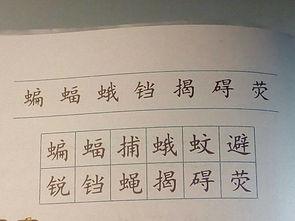 蝙蝠蛾铛揭碍荧
蝙蝠捕蛾蚊避
锐铛蝇揭碍荧